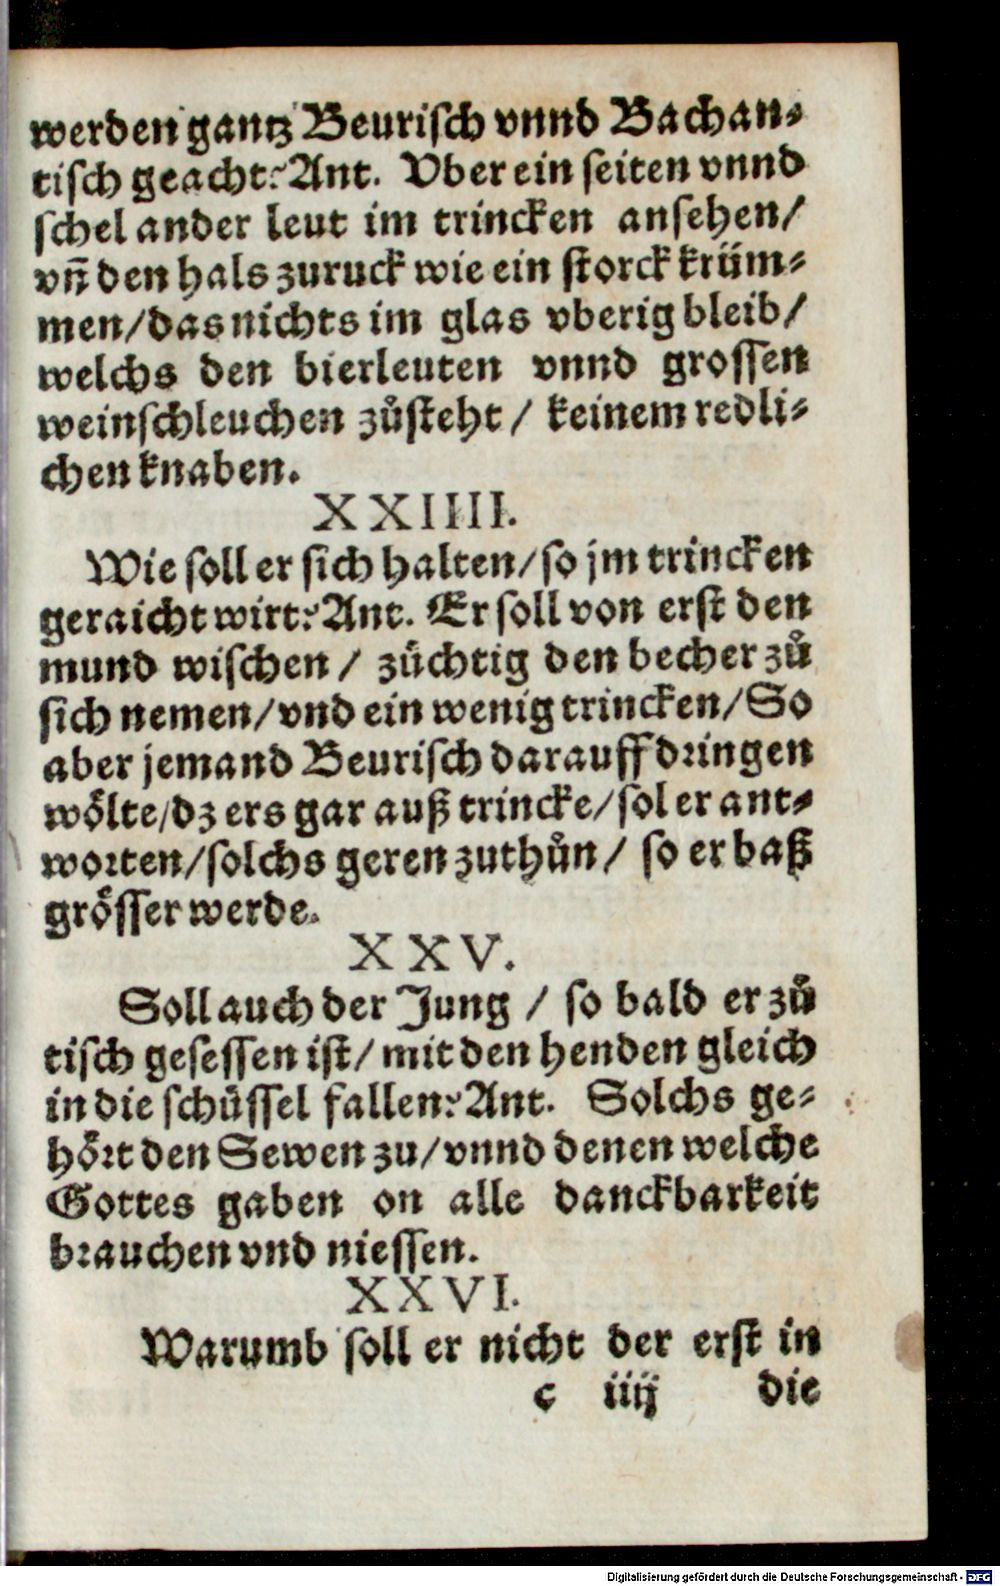 werden gantz Beurisch vnnd Bachan⸗
tisch geacht? Ant. Vber ein seiten vnnd
schel ander leut im trincken ansehen/
vñ den hals zuruck wie ein storck krüm⸗
men/das nichts im glas vberig bleib/
welchs den bierleuten vnnd grossen
weinschleuchen zůsteht / keinem redli⸗
chen knaben.
XXIIII.
Wie soll er sich halten/so jm trincken
geraicht wirt? Ant. Er soll von erst den
mund wischen / züchtig den becher zů
sich nemen/vnd ein wenig trincken/So
aber jemand Beurisch darauff dringen
wölte/dz ers gar auß trincke/sol er ant⸗
worten/solchs geren zuthůn / so er baß
grösser werde.
XXV.
Soll auch der Jung / so bald er zů
tisch gesessen ist/ mit den henden gleich
in die schüssel fallen? Ant. Solchs ge⸗
hört den Sewen zu/vnnd denen welche
Gottes gaben on alle danckbarkeit
brauchen vnd niessen.
XXVI.
Warumb soll er nicht der erst in
c iiij die
Digitalisierung gefördert durch die Deutsche Forschungsgemeinschaft - DFG